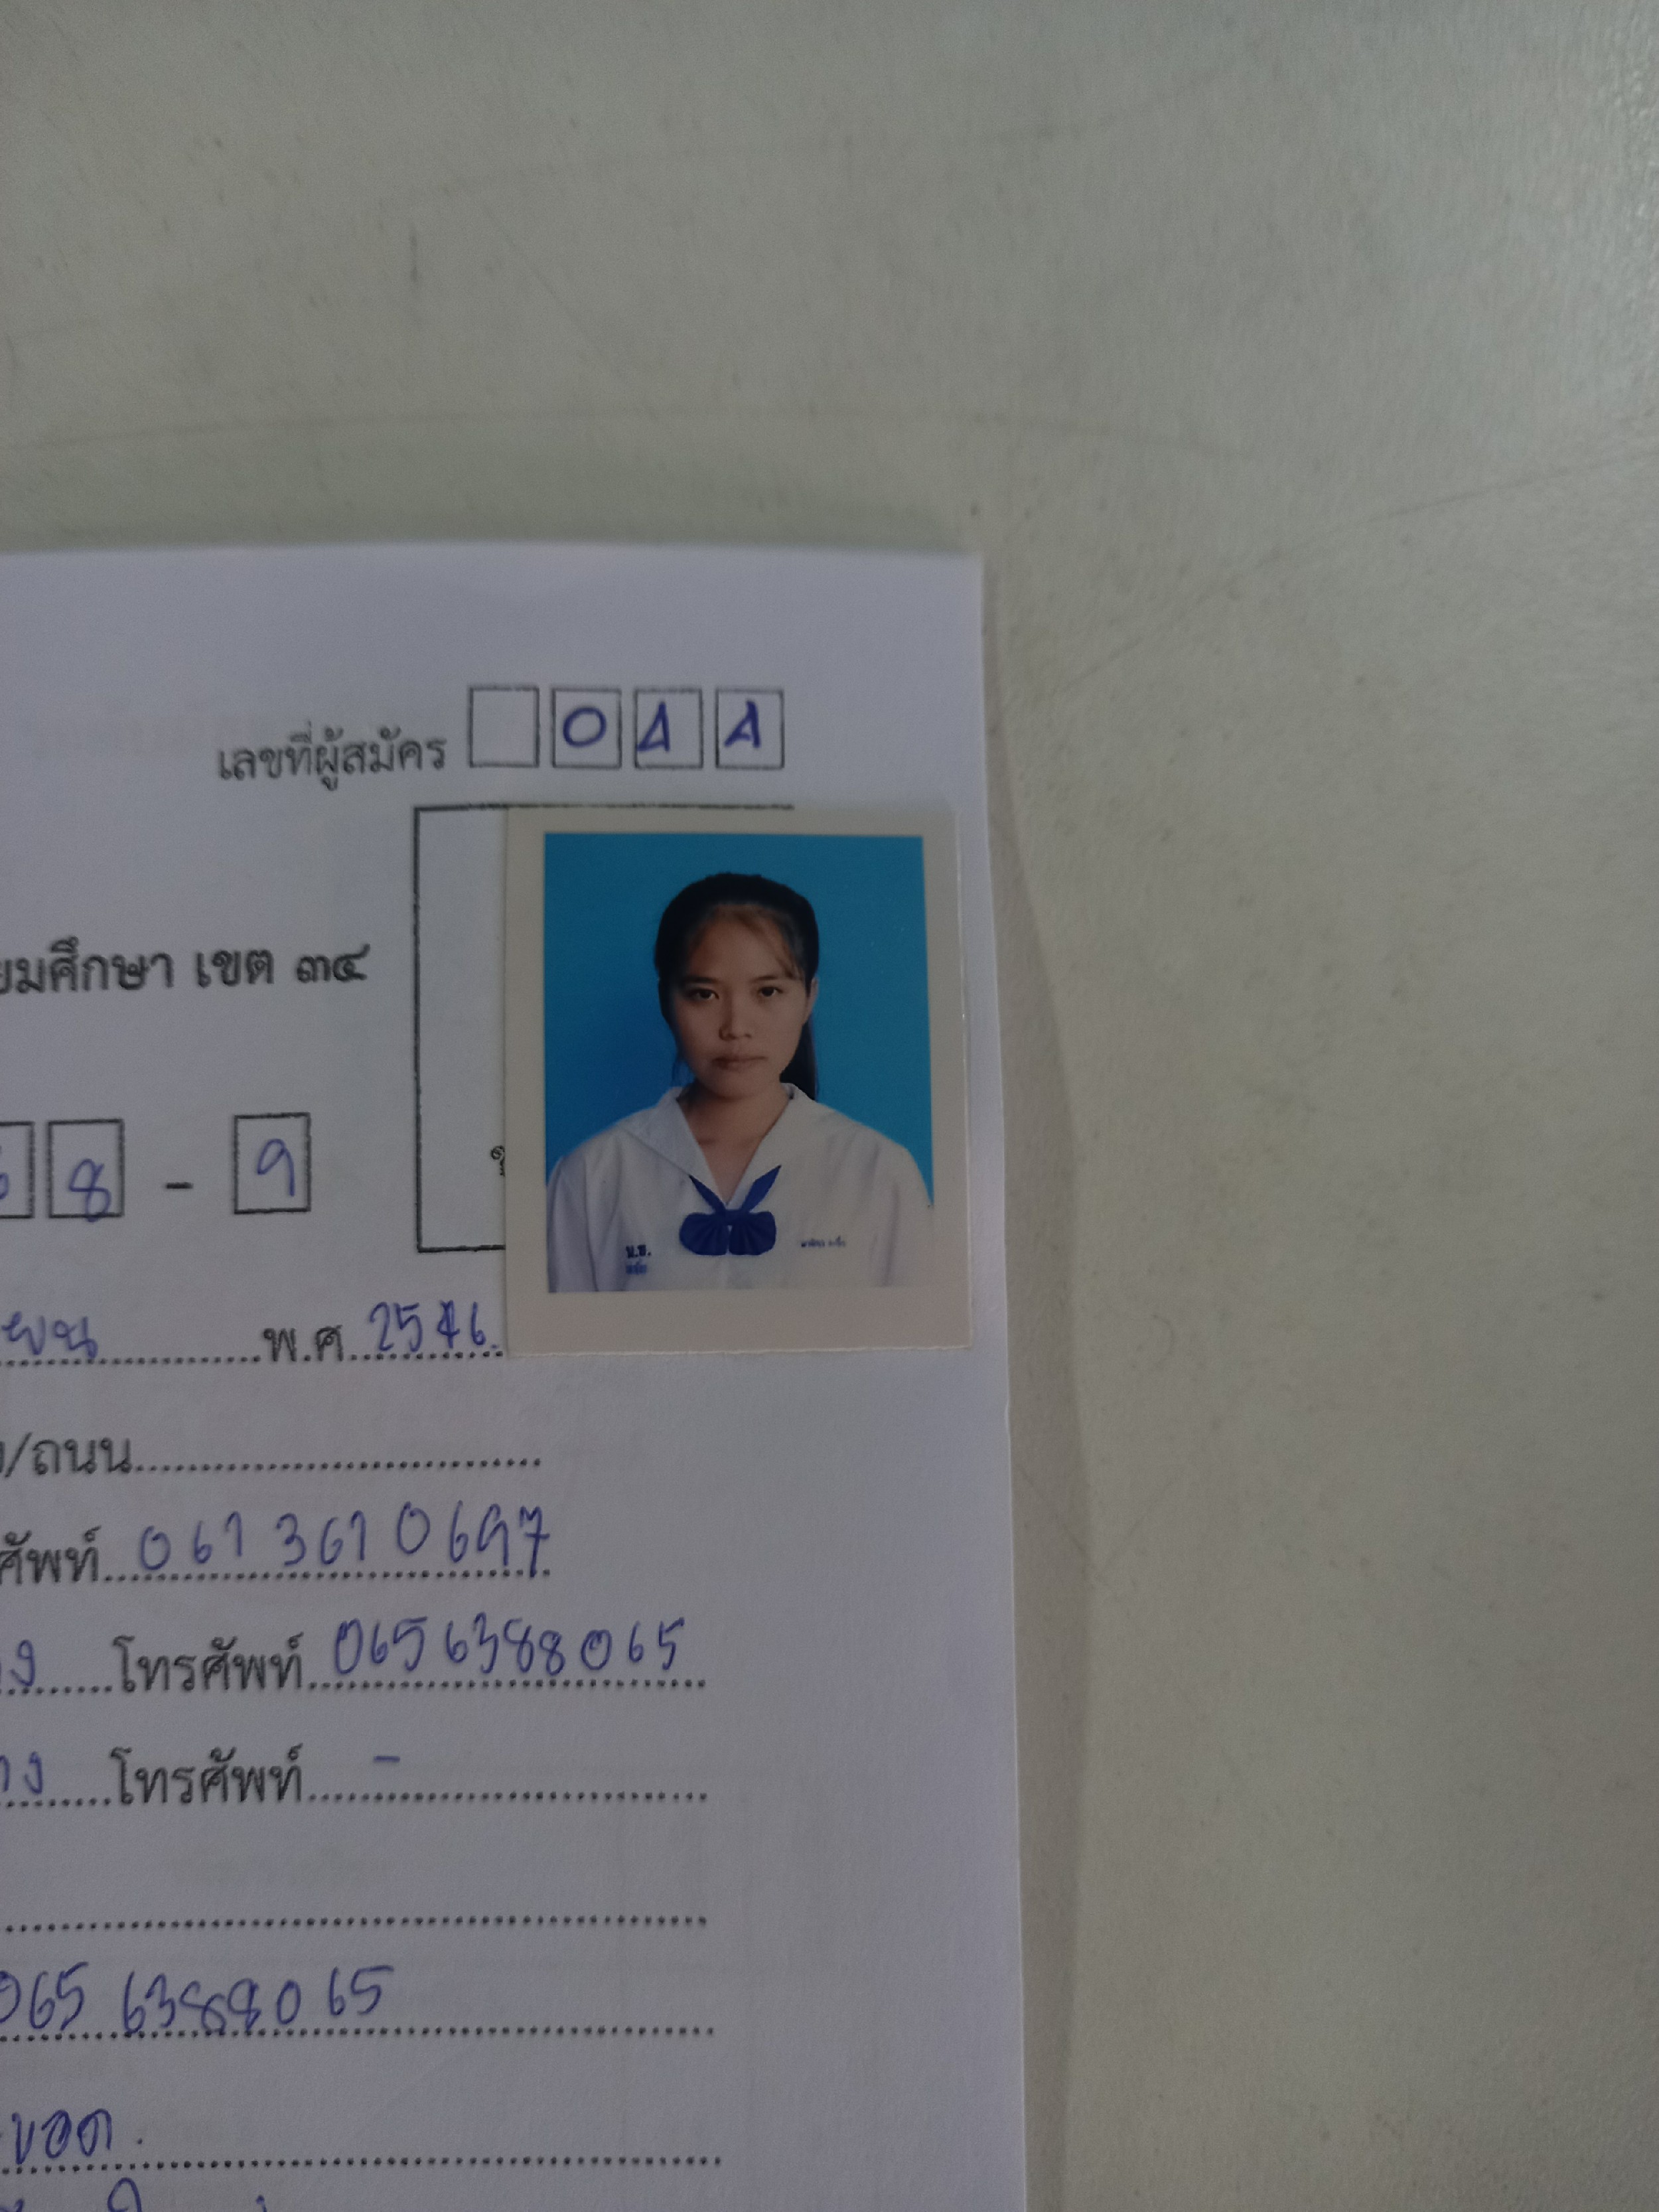 เลขที่ผู้สมัคร 0
ยมศึกษา เขต ๓๔
8 - 9
น.ข.
ยน พ.ศ. 2546
/ถนน
ศัพท์ 061 361 0697
ง โทรศัพท์ 065 6388065
าง โทรศัพท์ -
065 6388065
ขอด